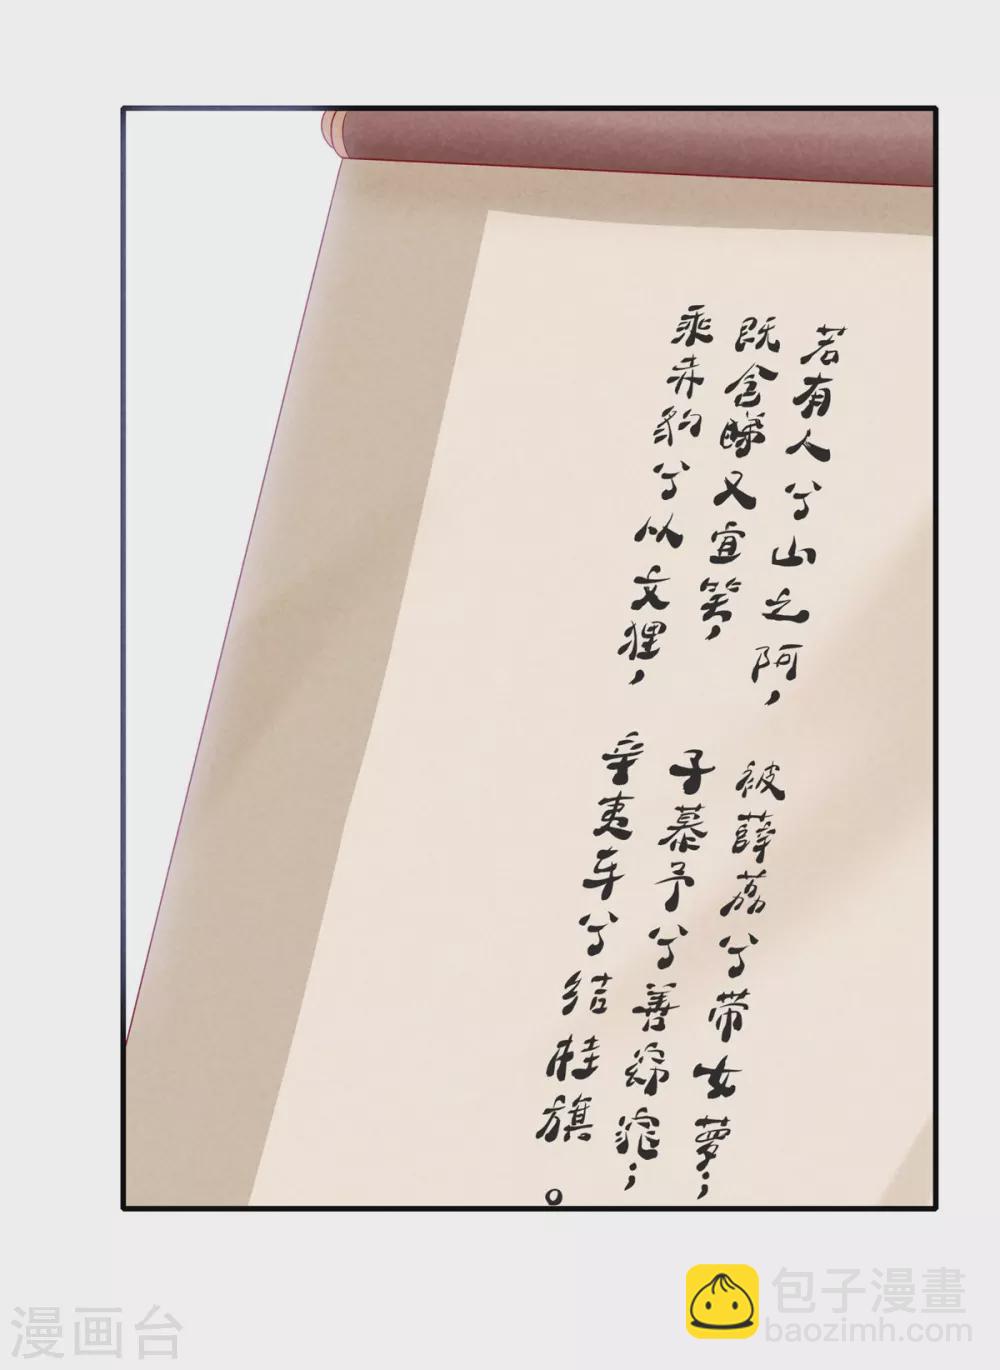 若有人兮山之阿，被薜荔兮带女萝；
既含睇又宜笑，子慕予兮善窈窕；
乘赤豹兮从文狸，辛夷车兮结桂旗。
漫画台
包子漫畫
baozimh.com